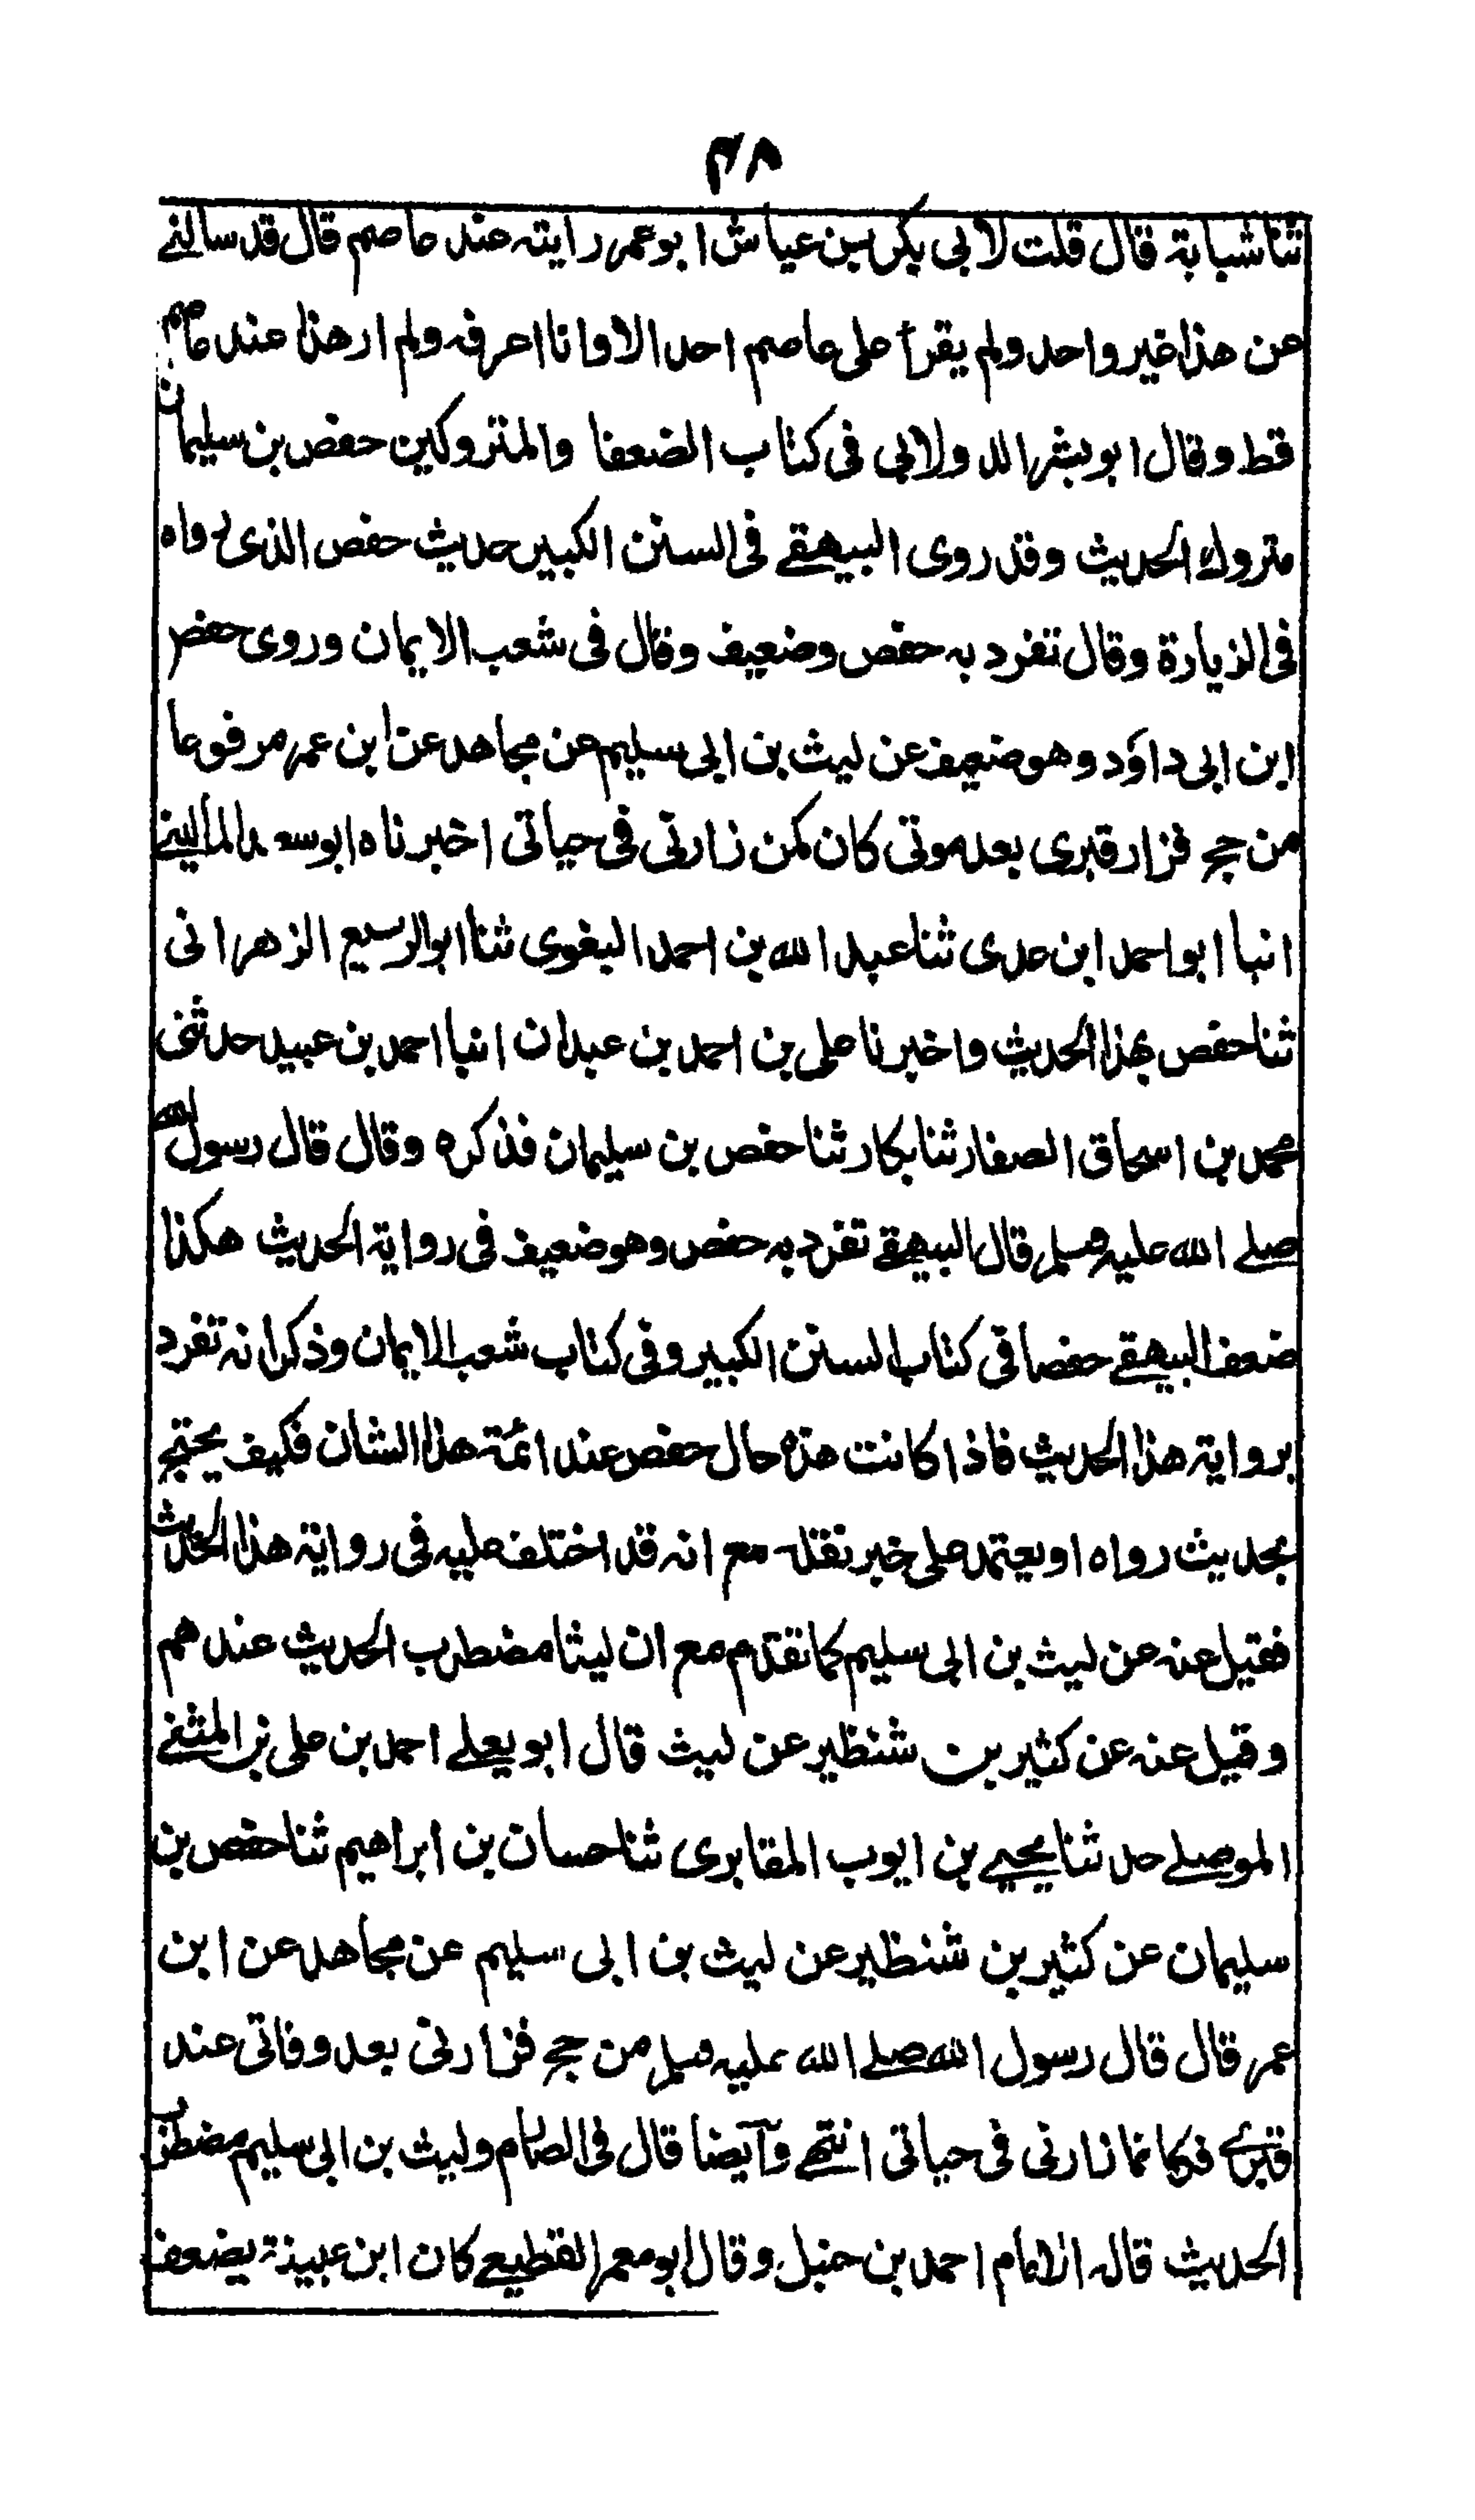 ٣٨
ثنا شبابة قال قلت لابي بكر بن عياش ابو عمر رايته عند عاصم قال قد سالنے
عن هذا غير واحد ولم يقرأ على عاصم احد الا وانا اعرفه ولم ار هذا عند عاصم
قط وقال ابو بشر الدولابي فى كتاب الضعفا والمتروكين حفص بن سليمان
متروك الحديث وقد روى البيهقے فى السنن الكبير حديث حفص الذى رواه
فى الزيارة وقال تفرد به حفص وضعيف وقال فى شعب الايمان وروى حفص
ابن ابى داؤد وهو ضعيف عن ليث بن ابى سليم عن مجاهد عن ابن عمر مرفوعا
من حج فزار قبرى بعد موتى كان كمن زارنى فى حياتى اخبرناه ابو سعد المالينے
انبا ابو احمد ابن عدى ثنا عبد الله بن احمد البغوى ثنا ابو الربيع الزهرانى
ثنا حفص بهذا الحديث واخبرنا على بن احمد بن عبدان انبا احمد بن عبيد حدثنى
محمد بن اسحاق الصفار ثنا بكار ثنا حفص بن سليمان فذكره وقال قال رسول الله
صلے الله عليه وسلم قال البيهقے تفرد به حفص وهو ضعيف فى رواية الحديث هكذا
ضعف البيهقے حفصا فى كتاب السنن الكبير وفى كتاب شعب الايمان وذكر انه تفرد
برواية هذا الحديث فاذا كانت هذه حال حفص عند ائمة هذا الشان فكيف يحتج
بحديث رواه او يعتمد على خبر نقله مع انه قد اختلف عليه فى رواية هذا الحديث
فقيل عنه عن ليث بن ابى سليم كما تقدم مع ان ليثا مضطرب الحديث عندهم
وقيل عنه عن كثير بن شنظير عن ليث قال ابو يعلے احمد بن على بن المثنے
الموصلے حدثنا يحيے بن ايوب المقابرى ثنا حسان بن ابراهيم ثنا حفص بن
سليمان عن كثير بن شنظير عن ليث بن ابى سليم عن مجاهد عن ابن
عمر قال قال رسول الله صلے الله عليه وسلم من حج فزارنى بعد وفاتى عند
قبرے فكانما زارنى فى حياتى انتهے وآيضا قال فى الصارم وليث بن ابى سليم مضطرب
الحديث قاله الامام احمد بن حنبل وقال ابو معمر القطيعے كان ابن عيينة يضعف